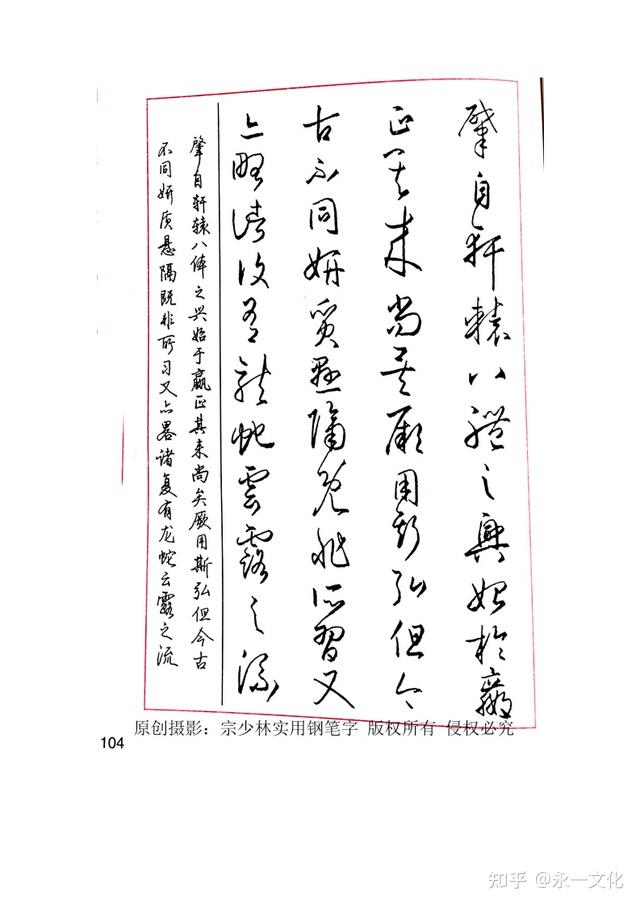 肇自軒轅八體之興始於嬴
正其来尚矣厥用斯弘但今
古不同妍質懸隔既非所習又
亦略諸復有龍蛇雲露之流
肇自轩辕八体之兴始于嬴正其来尚矣厥用斯弘但今古
不同妍质悬隔既非所习又亦畧诸复有龙蛇云露之流
原创摄影：宗少林实用钢笔字 版权所有 侵权必究
104
知乎 @永一文化